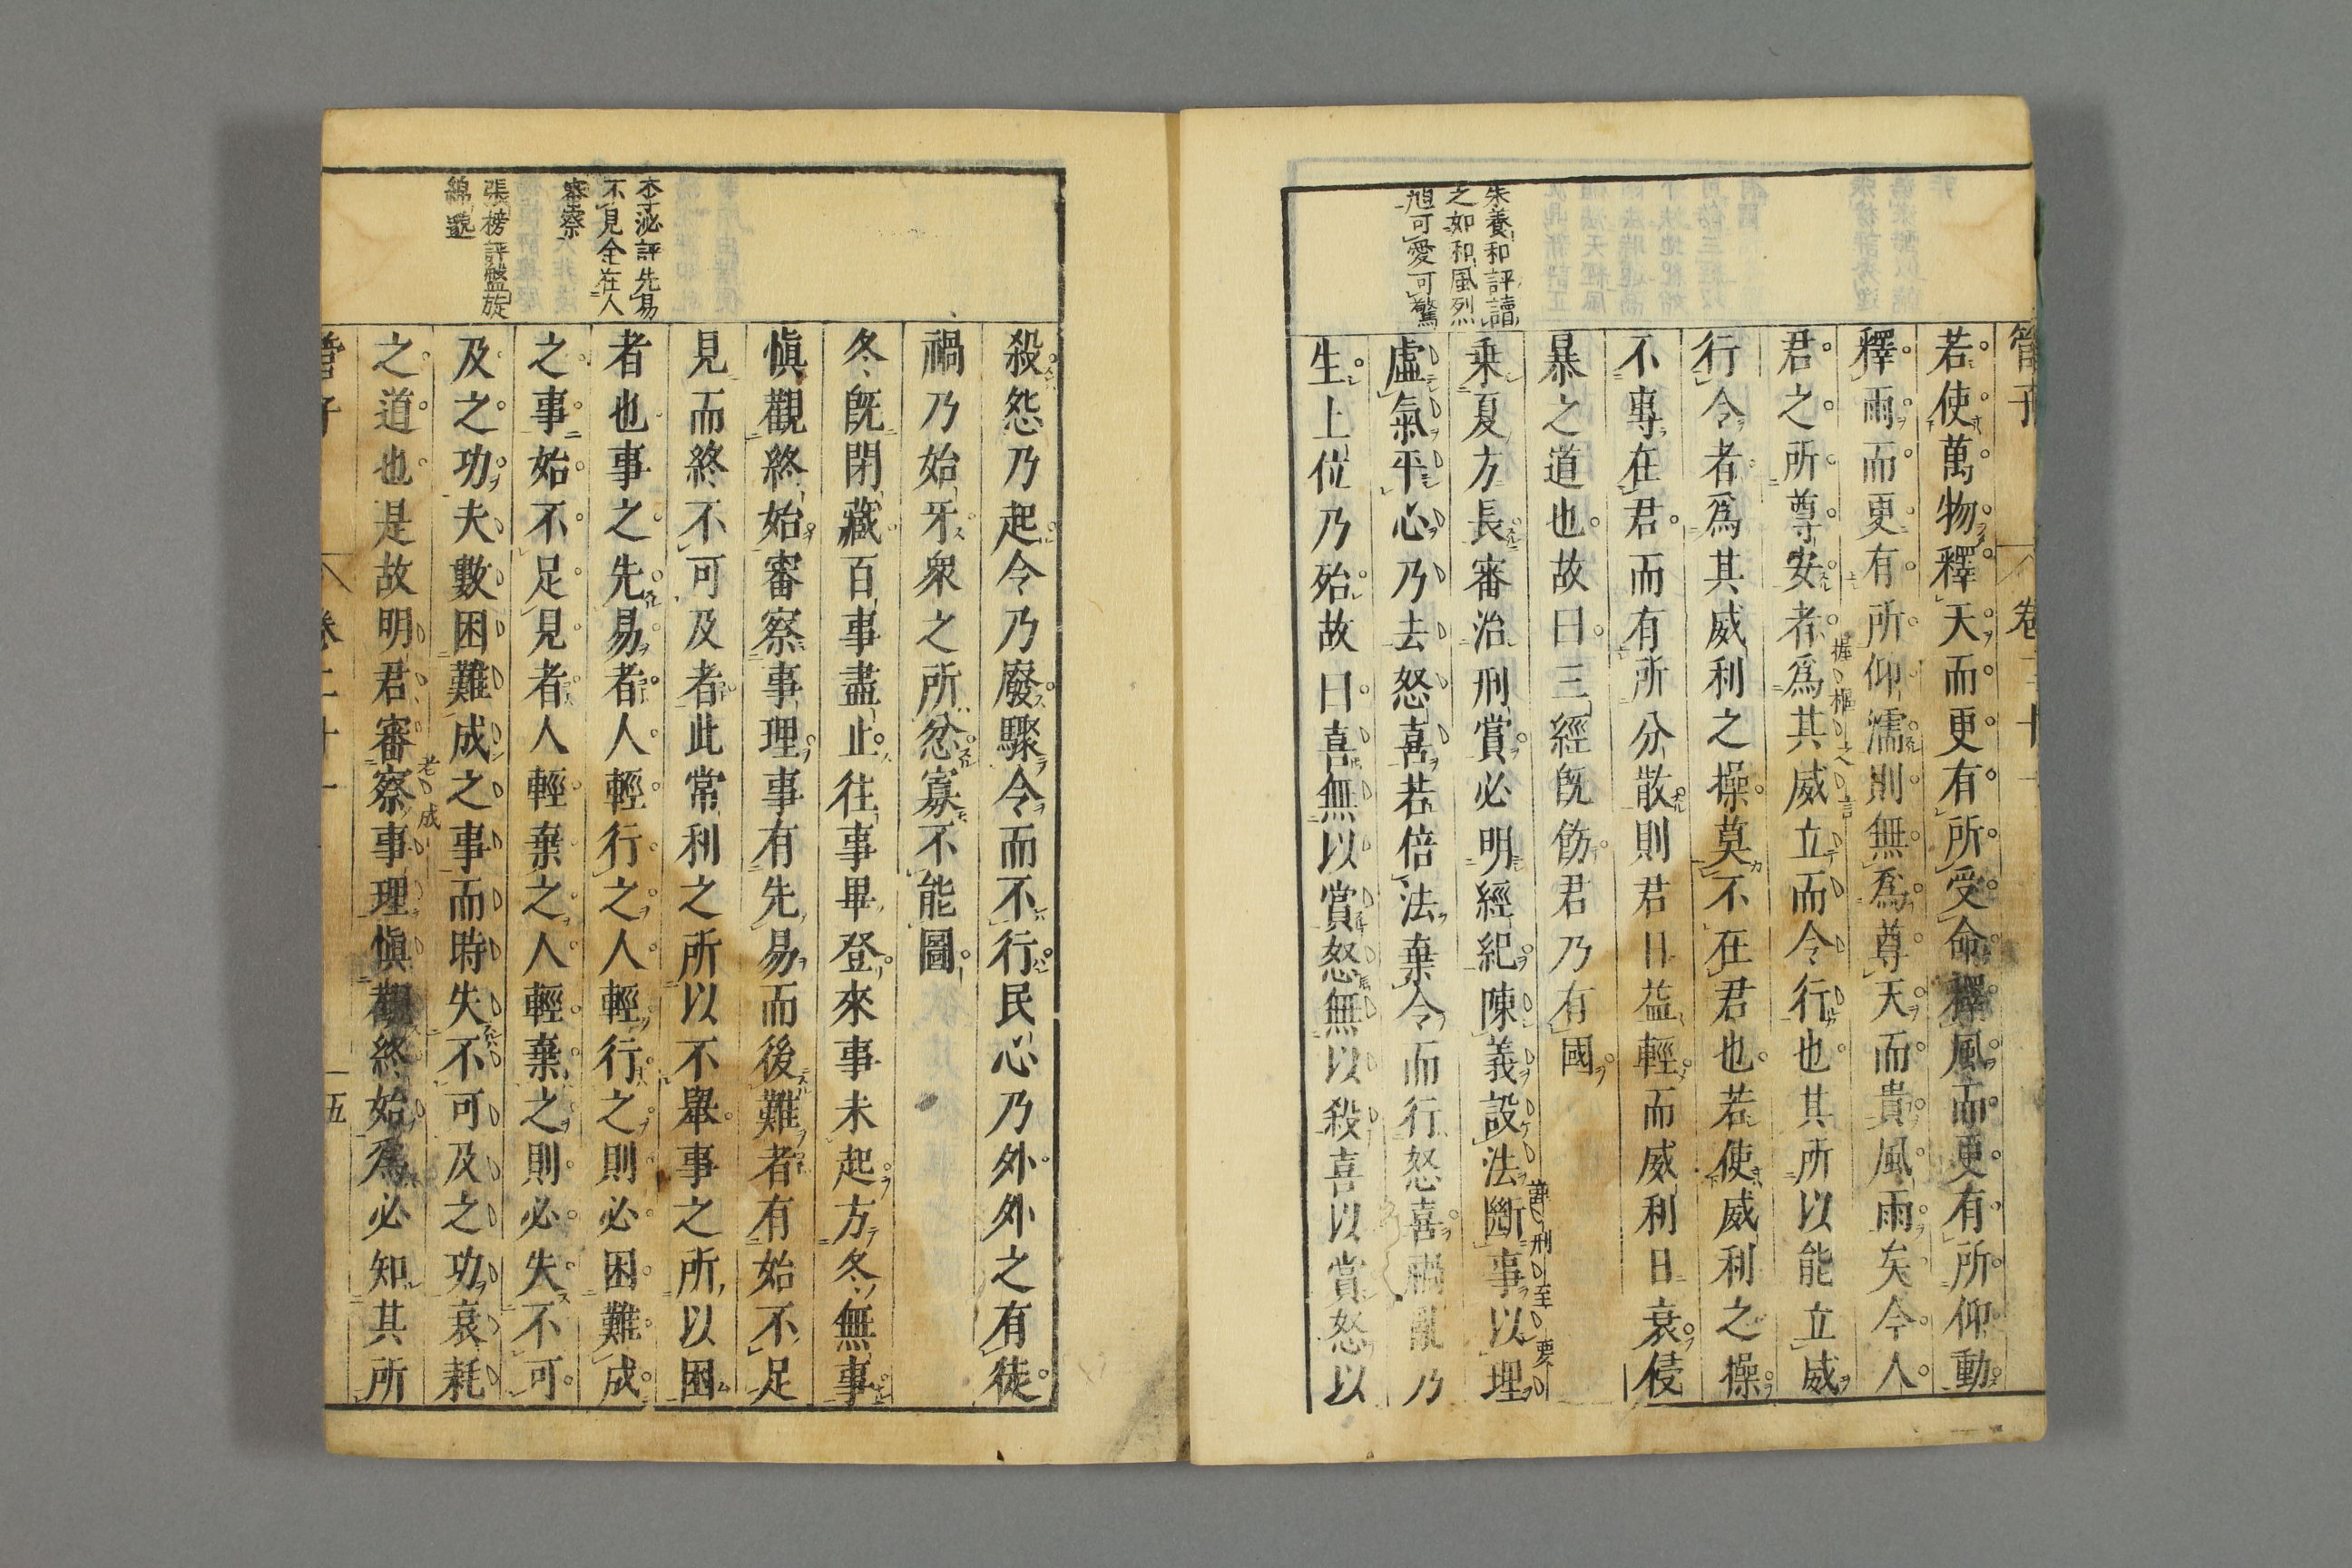 管子 卷二十一
若使萬物釋天而更有所受命釋風而更有所仰動
釋雨而更有所仰濡則無爲尊天而貴風雨矣今人
君之所尊安者爲其威立而令行也其所以能立威
握樞之言
行令者爲其威利之操莫不在君也若使威利之操
不專在君而有所分散則君日益輕而威利日衰侵
暴之道也故曰三經既飭君乃有國
乘夏方長審治刑賞必明經紀陳義設法斷事以理
謙刑至要
虛氣平心乃去怒喜若倍法棄令而行怒喜禍亂乃
生上位乃殆故曰喜無以賞怒無以殺喜以賞怒以
朱養和評讀
之如和風烈
旭可愛可驚
殺怨乃起令乃廢驟令而不行民心乃外外之有徒
禍乃始牙衆之所忿寡不能圖
冬既閉藏百事盡止往事畢登來事未起方冬無事
愼觀終始審察事理事有先易而後難者有始不足
見而終不可及者此常利之所以不舉事之所以困
者也事之先易者人輕行之人輕行之則必困難成
之事始不足見者人輕棄之人輕棄之則必失不可
及之功夫數困難成之事而時失不可及之功衰耗
老成
之道也是故明君審察事理愼觀終始爲必知其所
李泌評先易
不見全在人
審察
張榜評盤旋
綿邈
管子 卷二十一 五